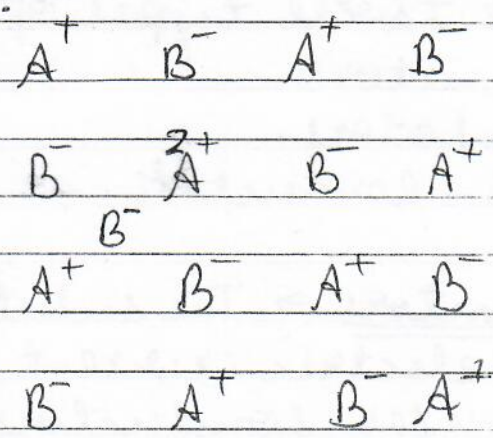 A⁺ B⁻ A⁺ B⁻
B⁻ A²⁺ B⁻ A⁺
B⁻
A⁺ B⁻ A⁺ B⁻
B⁻ A⁺ B⁻ A⁺